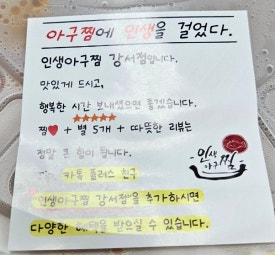 아구찜에 인생을 걸었다.
인생아구찜 강서점입니다.
맛있게 드시고,
행복한 시간 보내셨으면 좋겠습니다.
★★★★★
찜♥ + 별 5개 + 따뜻한 리뷰는
정말 큰 힘이 됩니다.
카톡 플러스 친구
인생아구찜 강서점을 추가하시면
다양한 혜택을 받으실 수 있습니다.
인생
아구찜